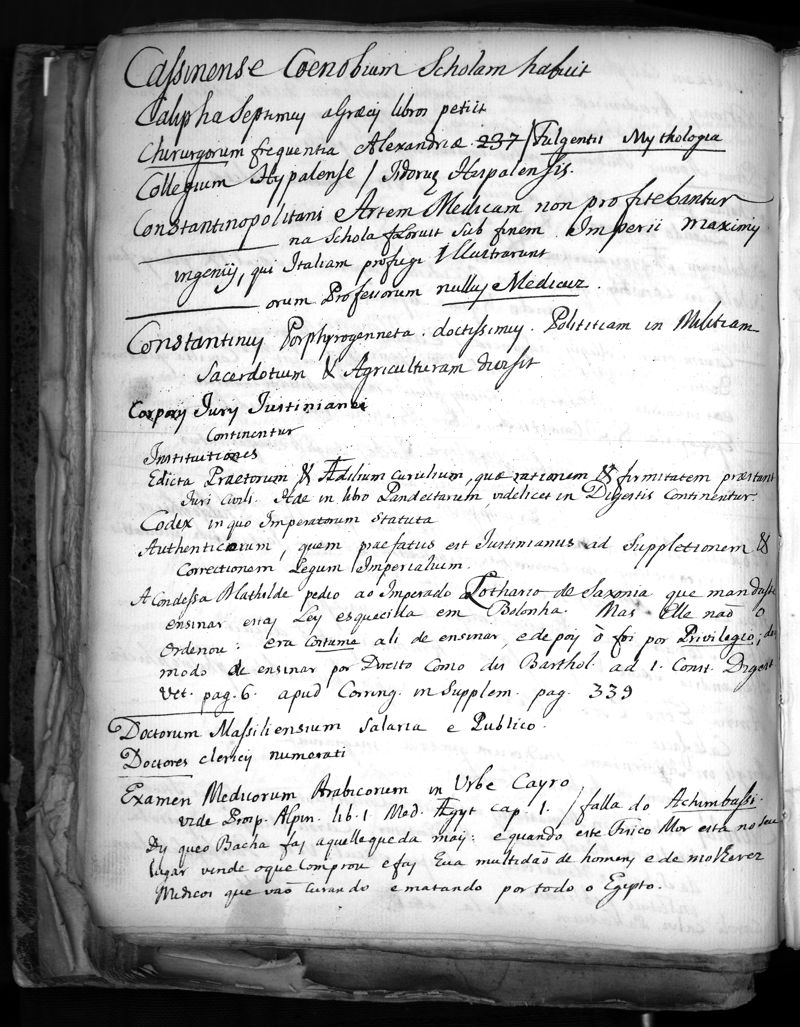 Cassinense Coenobium Scholam habuit
Calipha Septimus a Græcis libros petiit
Chirurgorum frequentia Alexandriæ. 237 / Fulgentii Mythologia
Collegium Hypalense / Isidorus Hispalensis.
Constantinopolitani Artem Medicam non profitebantur
na Schola floruit sub finem Imperii maximis
ingeniis, qui Italiam profugi Illustrarunt
orum Professorum nullus Medicus.
Constantinus Porphyrogenneta. doctissimus. Politiam in Militiam
Sacerdotium & Agriculturam divisit
Corporis Juris Justinianei
Continentur
Instituitiones
Edicta Praetorum & Ædilium curulium, quæ rationem & firmitatem præstant
Juri Civili. Hæ in libro Pandectarum, videlicet in Digestis Continentur.
Codex in quo Imperatorum Statuta
Authenticorum, quem praefatus est Justinianus ad Suppletionem &
Correctionem Legum Imperialium.
A Condessa Mathilde pedio ao Imperado Lothario de Saxonia que mandasse
ensinar essas Ley esquecida em Bolonha. Mas elle naõ o
Ordenou: era Costume ali de ensinar, e depois o foi por Privilegio, do
modo de ensinar por Direito como dis Barthol. ad l. Const. Digest
Vet. pag. 6. apud Conring. in Supplem. pag. 339
Doctorum Massiliensium Salaria e Publico.
Doctores clericis numerati
Examen Medicorum Arabicorum in Urbe Cayro
vide Prosp. Alpin. lib. 1 Med. Ægypt cap 1. / falla do Achimbassi.
Dis que o Bacha fas aquelle que da mais: e quando este Fisico Mor está no seu
lugar vende o que comprou e fas hua multidaõ de homens e de molheres
Medicos que vaõ curando e matando por todo o Egipto.